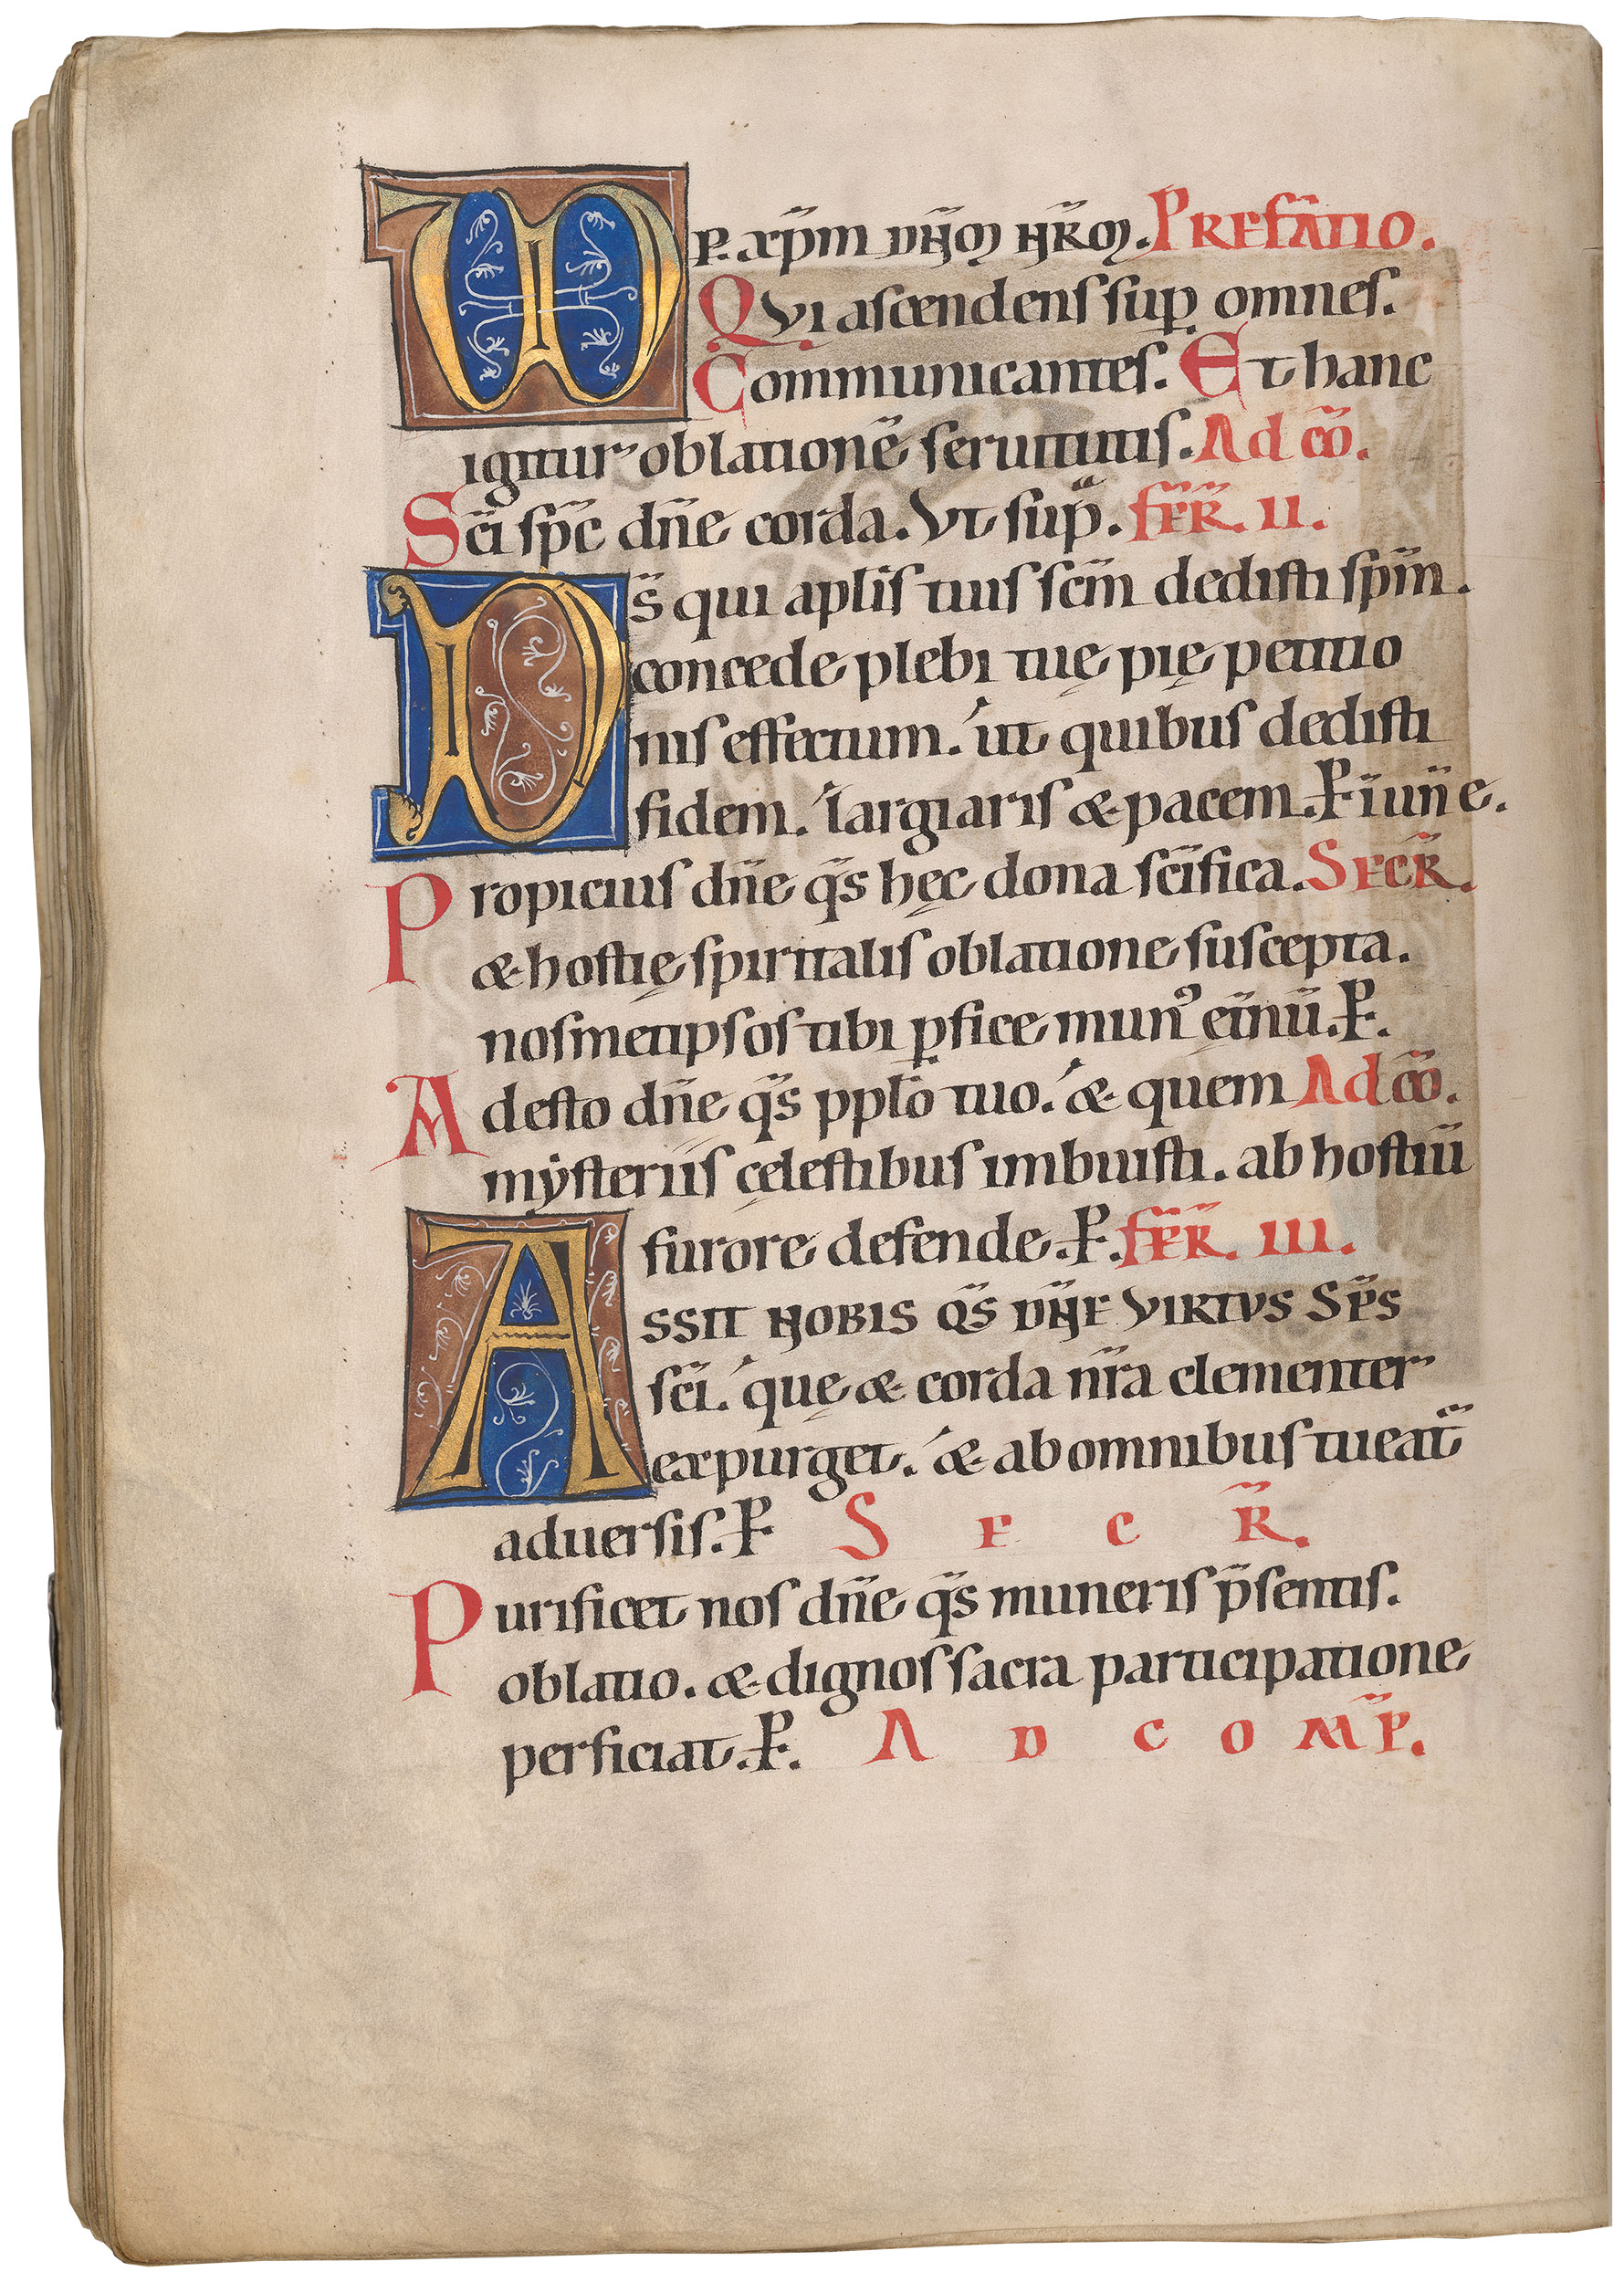 VD P. xp̄m dn̄m nr̄m. PREFATIO.
Qui ascendens sup̱ omnes.
Communicantes. Et hanc
igitur oblationē seruitutis. Ad cō.
Sc̄i sp̄c dn̄e corda. Vt supᵃ. FER̄. II.
Ds̄ qui apl̄is tuis sc̄m dedisti sp̄m.
concede plebi tuę pię petitio
nis effectum. ut quibus dedisti
fidem. largiaris & pacem. P. ī un̄ e.
Propicius dn̄e qs̄ hęc dona sc̄ifica. SECR̄.
& hostię spiritalis oblatione suscepta.
nosmetipsos tibi p̱fice munꝰ ęt̄nū. P.
Adesto dn̄e qs̄ ppl̄o tuo. & quem Ad cō.
mẏsteriis cęlestibus imbuisti. ab hostiū
furore defende. P. FER̄. III.
ASSIT NOBIS QS̄ DN̄E VIRTVS SP̄S
sc̄i. quę & corda nr̄a clementer
expurget. & ab omnibus tueat̄
aduersis. P. S E C R̄.
Purificet nos dn̄e qs̄ muneris p̄sentis.
oblatio. & dignos sacra participatione
perficiat. P. A D C O M̄ P.